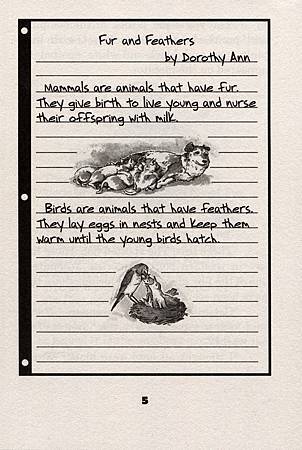 Fur and Feathers
by Dorothy Ann
Mammals are animals that have fur.
They give birth to live young and nurse
their offspring with milk.
Birds are animals that have feathers.
They lay eggs in nests and keep them
warm until the young birds hatch.
5